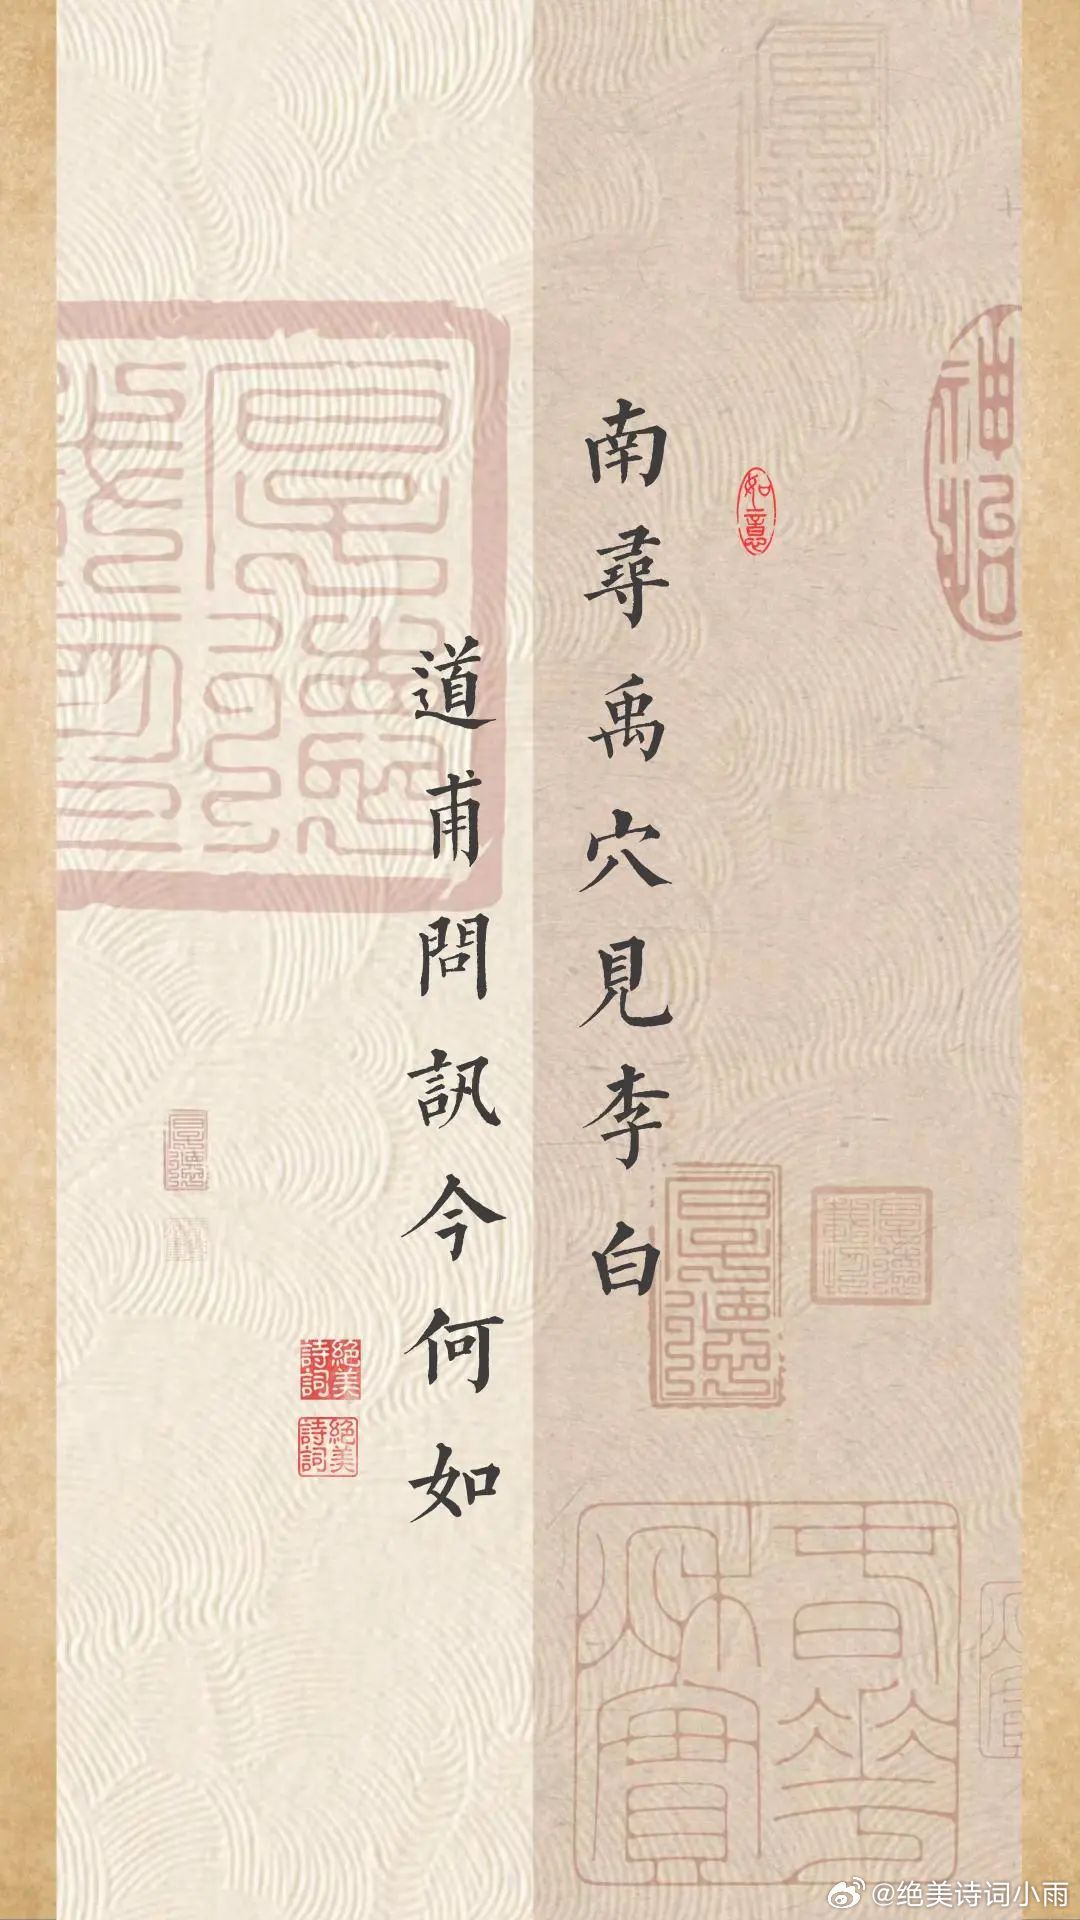 南尋禹穴見李白
道甫問訊今何如
如意
絕美詩詞
絕美詩詞
@绝美诗词小雨